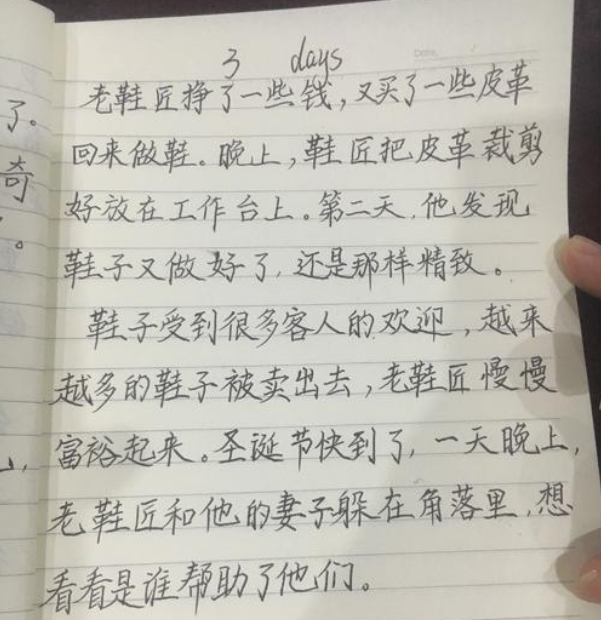 3 days
老鞋匠挣了一些钱，又买了一些皮革
回来做鞋。晚上，鞋匠把皮革裁剪
好放在工作台上。第二天，他发现
鞋子又做好了，还是那样精致。
鞋子受到很多客人的欢迎，越来
越多的鞋子被卖出去，老鞋匠慢慢
富裕起来。圣诞节快到了，一天晚上，
老鞋匠和他的妻子躲在角落里，想
看看是谁帮助了他们。
了。
奇
。